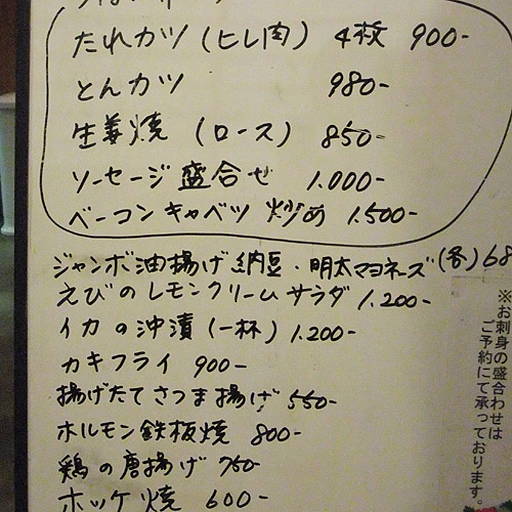 たれカツ (ヒレ肉) 4枚 900-
とんカツ 980-
生姜焼 (ロース) 850-
ソーセージ盛合せ 1.000-
ベーコンキャベツ炒め 1.500-
ジャンボ油揚げ 納豆・明太マヨネーズ (各) 68
えびのレモンクリームサラダ 1.200-
イカの沖漬 (一杯) 1.200-
カキフライ 900-
揚げたてさつま揚げ 550-
ホルモン鉄板焼 800-
鶏の唐揚げ 750-
ホッケ焼 600-
※お刺身の盛合わせは
ご予約にて承っております。